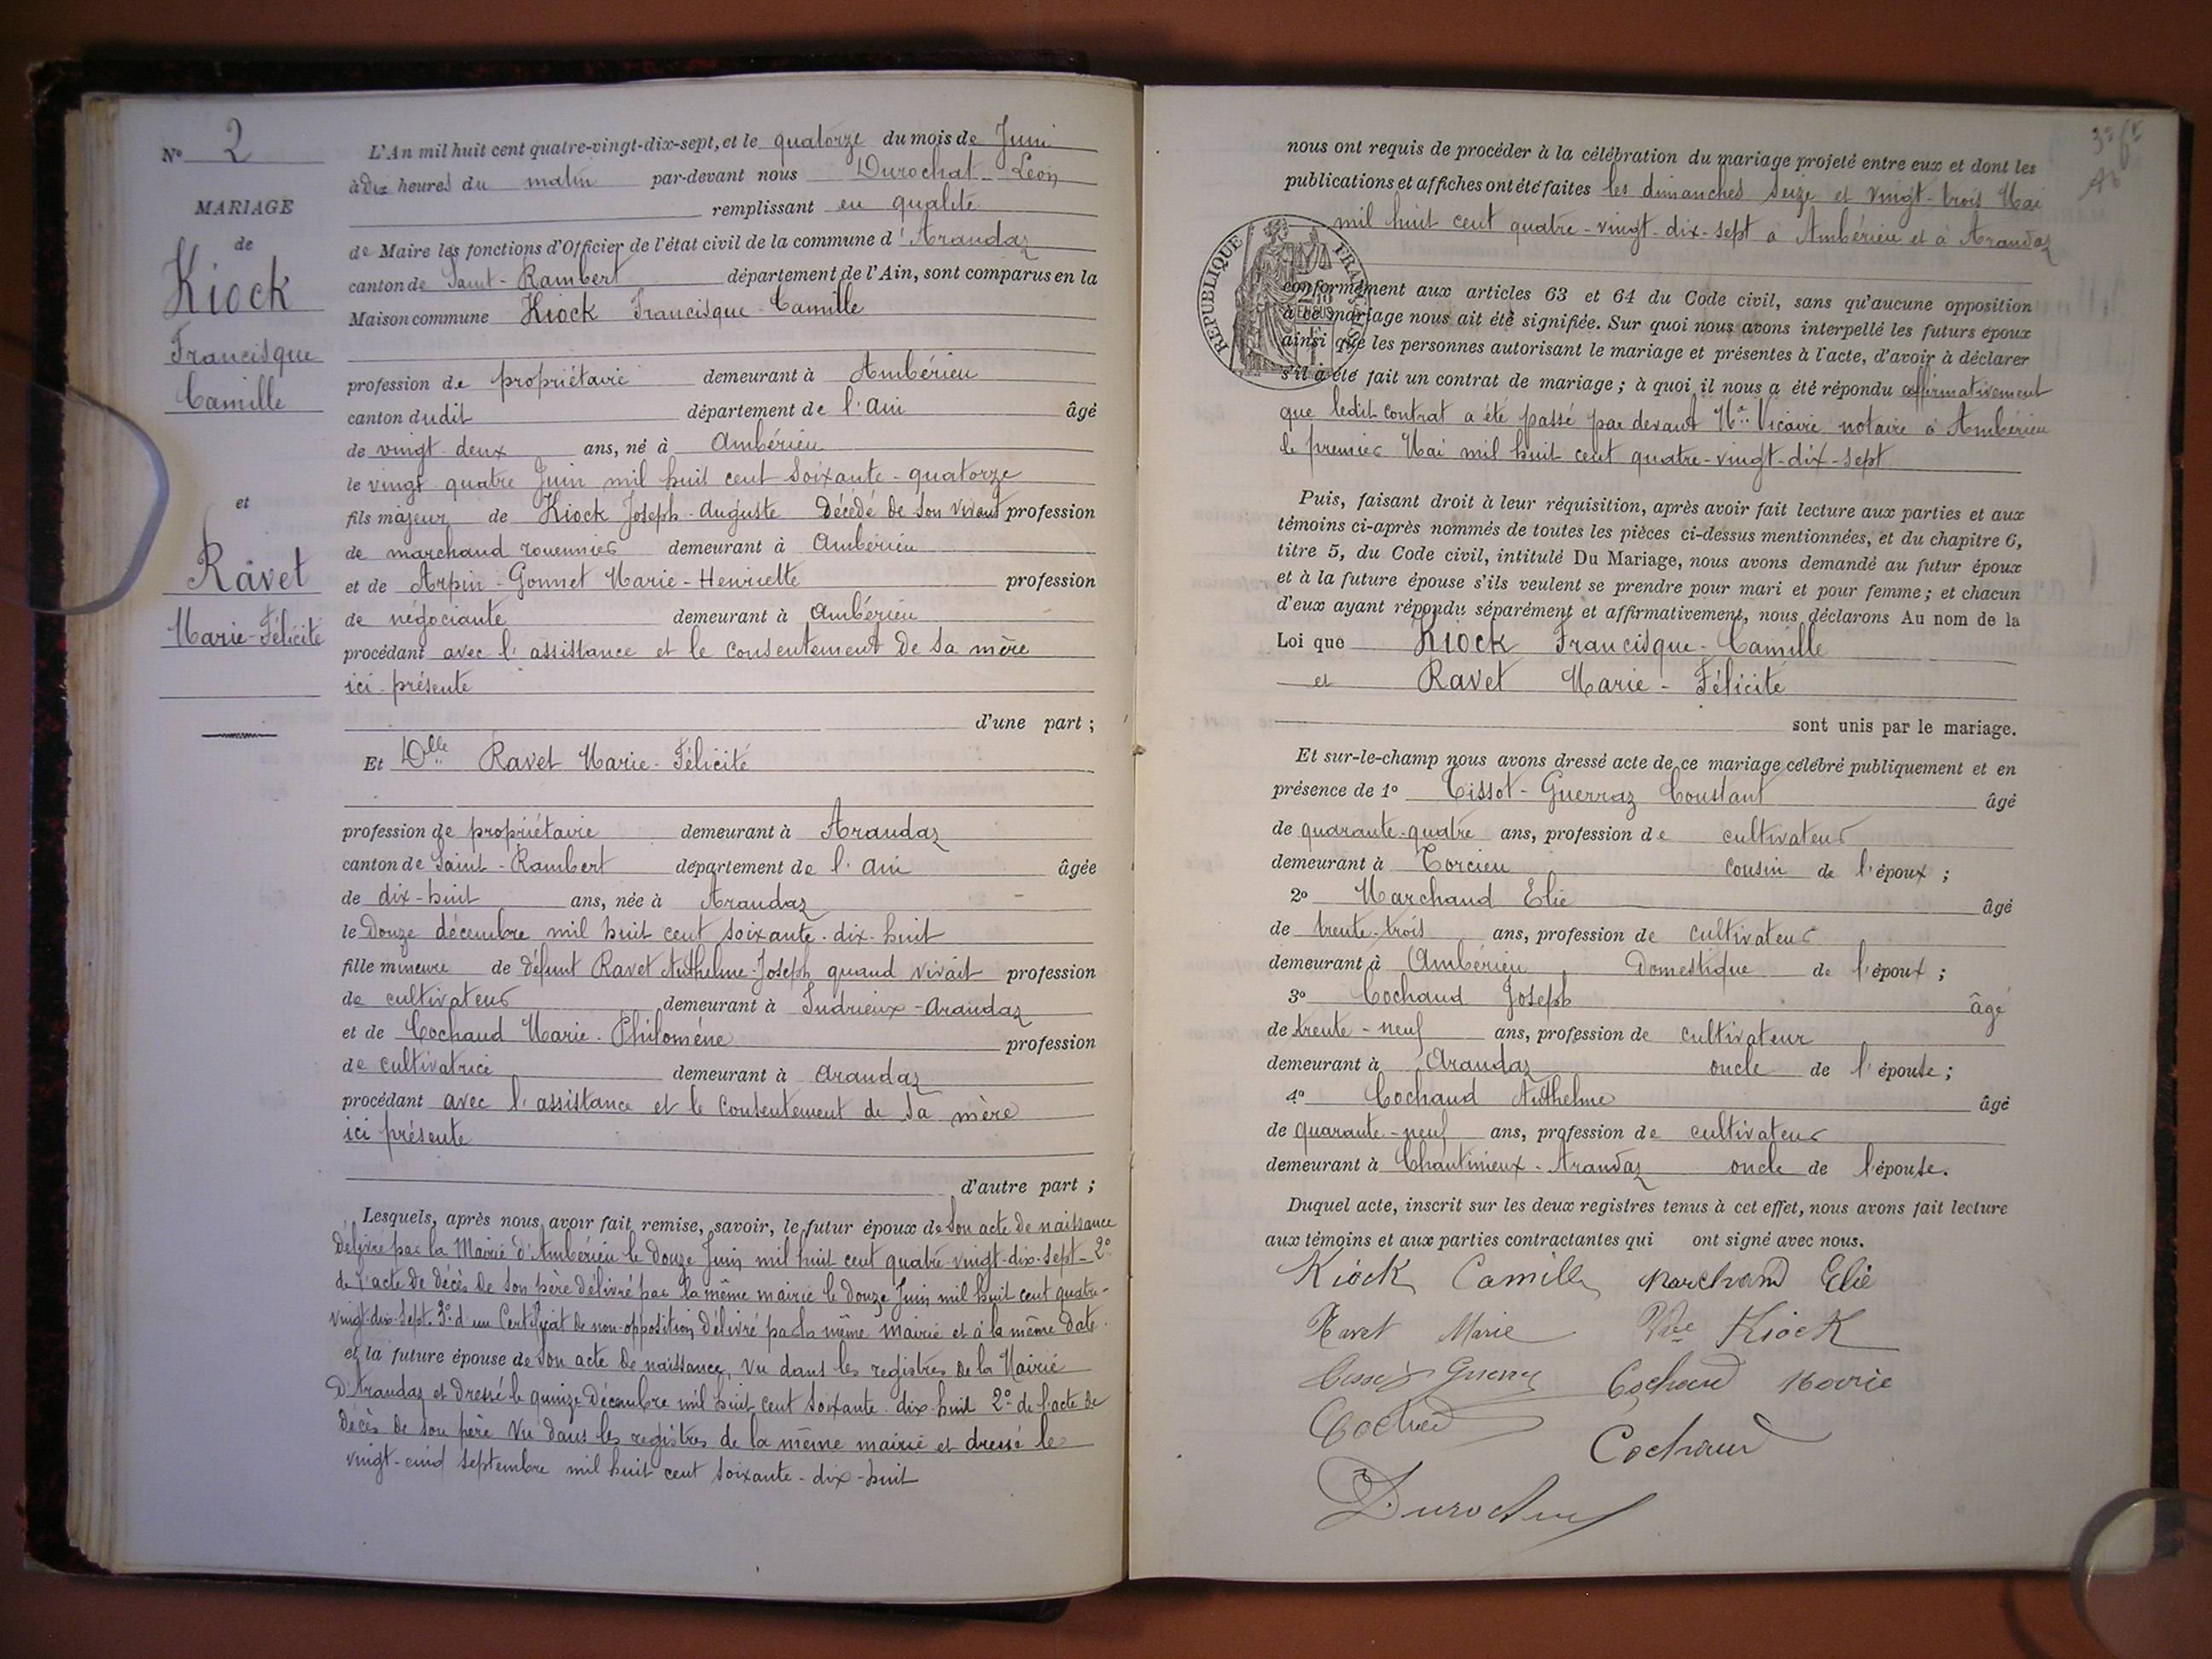 N° 2
MARIAGE
de
Kiock
Francisque
Camille
et
Ravet
Marie-Félicité
L'An mil huit cent quatre-vingt-dix-sept, et le quatorze du mois de Juin
à dix heures du matin par-devant nous Durochat Léon
remplissant en qualité
de Maire les fonctions d'Officier de l'état civil de la commune d'Arandaz
canton de Saint-Rambert département de l'Ain, sont comparus en la
Maison commune Kiock Francisque-Camille
profession de propriétaire demeurant à Ambérieu
canton dudit département de l'Ain âgé
de vingt-deux ans, né à Ambérieu
le vingt-quatre Juin mil huit cent soixante-quatorze
fils majeur de Kiock Joseph-Auguste décédé de son vivant profession
de marchand rouennier demeurant à Ambérieu
et de Arpin-Gonnet Marie-Henriette profession
de négociante demeurant à Ambérieu
procédant avec l'assistance et le consentement de sa mère
ici-présente
d'une part ;
Et Dlle Ravet Marie-Félicité
profession de propriétaire demeurant à Arandaz
canton de Saint-Rambert département de l'Ain âgée
de dix-huit ans, née à Arandaz
le Douze décembre mil huit cent soixante-dix-huit
fille mineure de défunt Ravet Anthelme-Joseph quand vivait profession
de cultivateur demeurant à Indrieux-Arandaz
et de Cochaud Marie-Philomène profession
de cultivatrice demeurant à Arandaz
procédant avec l'assistance et le consentement de sa mère
ici-présente
d'autre part ;
Lesquels, après nous avoir fait remise, savoir, le futur époux de son acte de naissance
délivré par la Mairie d'Ambérieu le douze Juin mil huit cent quatre-vingt-dix-sept - 2°
de l'acte de décès de son père délivré par la même mairie le douze Juin mil huit cent quatre-
vingt-dix-sept. 3° d'un Certificat de non-opposition délivré par la même Mairie et à la même date.
et la future épouse de son acte de naissance, vu dans les registres de la Mairie
d'Arandaz et dressé le quinze Décembre mil huit cent soixante-dix-huit 2° de l'acte de
décès de son père vu dans les registres de la même mairie et dressé le
vingt-cinq septembre mil huit cent soixante-dix-huit
nous ont requis de procéder à la célébration du mariage projeté entre eux et dont les
publications et affiches ont été faites les dimanches seize et vingt-trois Mai
mil huit cent quatre-vingt-dix-sept à Ambérieu et à Arandaz
REPUBLIQUE FRANÇAISE
conformément aux articles 63 et 64 du Code civil, sans qu'aucune opposition
à ce mariage nous ait été signifiée. Sur quoi nous avons interpellé les futurs époux
ainsi que les personnes autorisant le mariage et présentes à l'acte, d'avoir à déclarer
s'il a été fait un contrat de mariage ; à quoi il nous a été répondu affirmativement
que ledit contrat a été passé par devant Me Vicaire notaire à Ambérieu
le premier Mai mil huit cent quatre-vingt-dix-sept
Puis, faisant droit à leur réquisition, après avoir fait lecture aux parties et aux
témoins ci-après nommés de toutes les pièces ci-dessus mentionnées, et du chapitre 6,
titre 5, du Code civil, intitulé Du Mariage, nous avons demandé au futur époux
et à la future épouse s'ils veulent se prendre pour mari et pour femme ; et chacun
d'eux ayant répondu séparément et affirmativement, nous déclarons Au nom de la
Loi que Kiock Francisque-Camille
et Ravet Marie-Félicité
sont unis par le mariage.
Et sur-le-champ nous avons dressé acte de ce mariage célébré publiquement et en
présence de 1° Tissot-Guerraz Constant âgé
de quarante-quatre ans, profession de cultivateur
demeurant à Torcieu cousin de l'époux ;
2° Marchand Elie âgé
de trente-trois ans, profession de cultivateur
demeurant à Ambérieu Domestique de l'époux ;
3° Cochaud Joseph âgé
de trente-neuf ans, profession de cultivateur
demeurant à Arandaz oncle de l'épouse ;
4° Cochaud Anthelme âgé
de quarante-neuf ans, profession de cultivateur
demeurant à Chantinieux-Arandaz oncle de l'épouse.
Duquel acte, inscrit sur les deux registres tenus à cet effet, nous avons fait lecture
aux témoins et aux parties contractantes qui ont signé avec nous.
Kiock Camille Marchand Elie
Ravet Marie Vve Kiock
Guerraz Cochaud Marie
Cochaud
Cochaud
Durochat